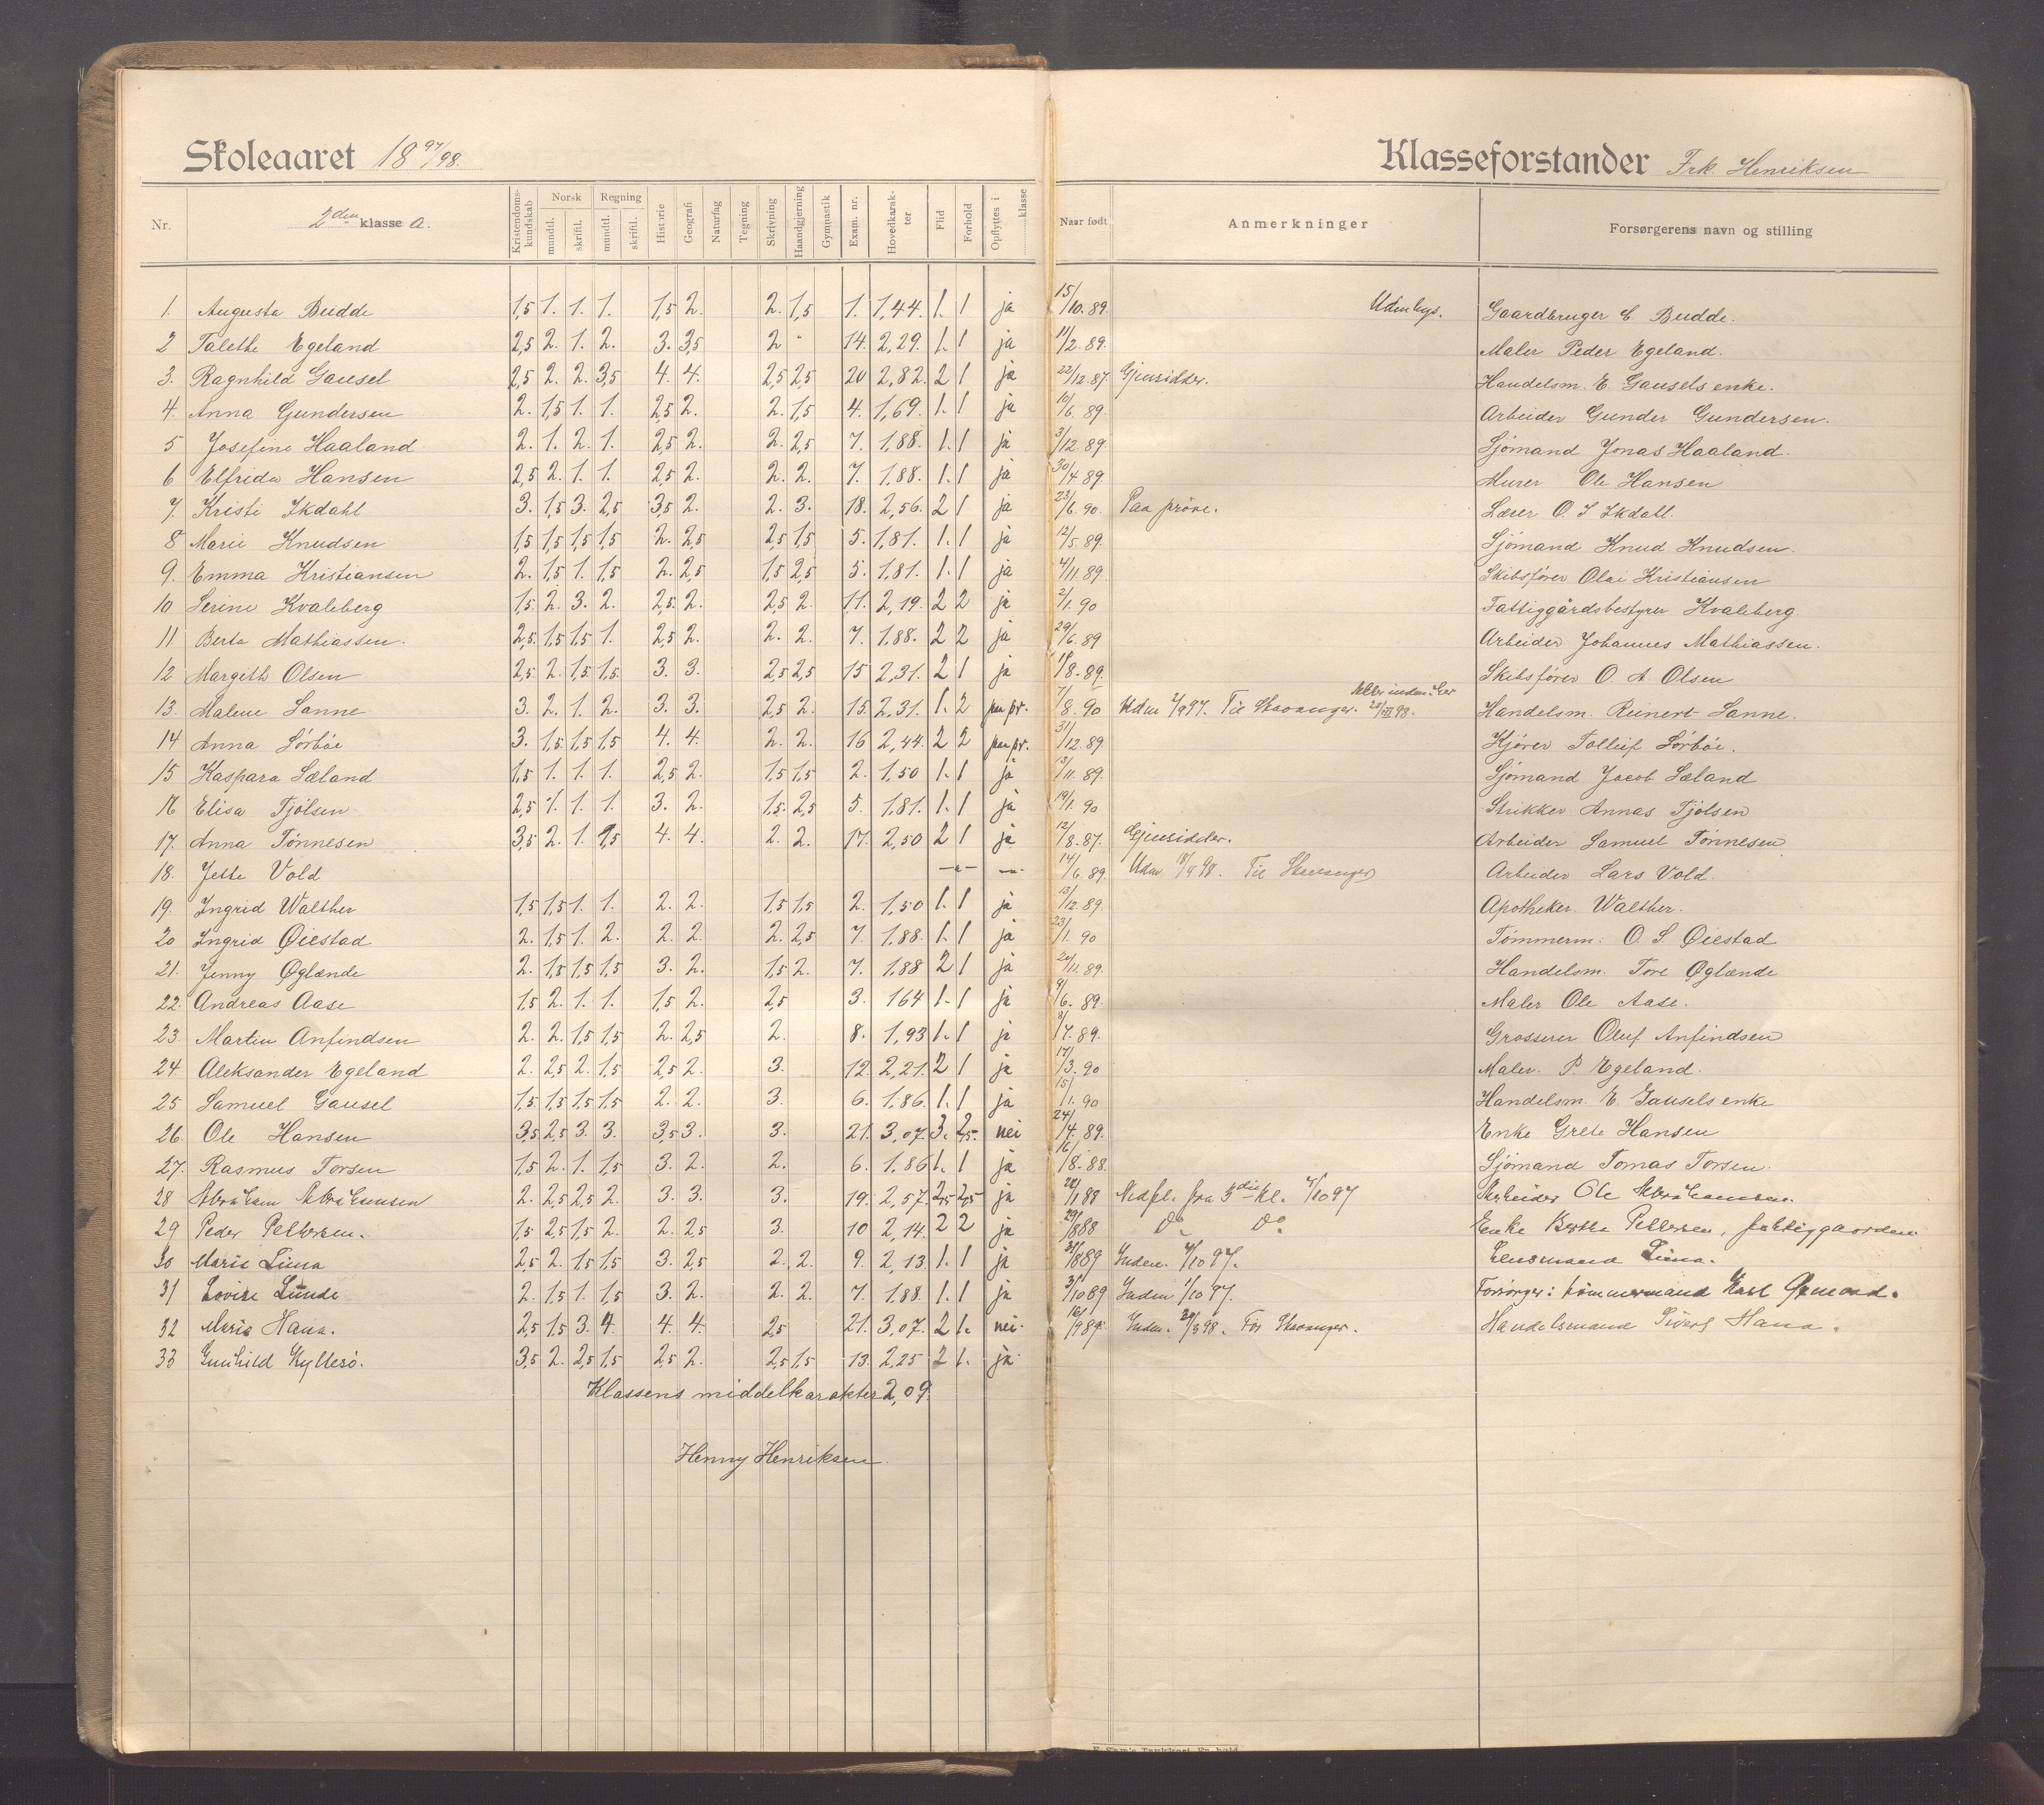 Skoleaaret 18 97/98.
Klasseforstander Frk. Henriksen
Nr. 2den klasse a. Kristendoms-kundskab Norsk mundtl. skriftl. Regning mundtl. skriftl. Historie Geografi Naturfag Tegning Skrivning Haandgjerning Gymnastik Exam. nr. Hovedkarakter Flid Forhold Opflyttes i klasse Naar født Anmerkninger Forsørgerens navn og stilling
1. Augusta Budde 1,5 1. 1. 1. 1,5 2. 2. 1,5 1. 1,44. 1. 1 ja 15/10.89. Udenbys. Gaardbruger E Budde.
2 Talethe Egeland 2,5 2. 1. 2. 3. 3,5 2 - 14. 2,29. 1. 1 ja 11/2.89. Maler Peder Egeland.
3. Ragnhild Gausel 2,5 2. 2. 3,5 4. 4. 2,5 2,5 20 2,82. 2 1 ja 22/12.87. Gjensidder. Handelsm. E. Gausels enke.
4. Anna Gundersen 2. 1,5 1. 1. 2,5 2. 2. 1,5 4. 1,69. 1. 1 ja 10/6.89. Arbeider Gunder Gundersen.
5 Josefine Haaland 2. 1. 2. 1. 2,5 2. 2. 2,5 7. 1,88. 1. 1 ja 3/12.89 Sjömand Jonas Haaland.
6 Elfrida Hansen 2,5 2. 1. 1. 2,5 2. 2. 2. 7. 1,88. 1. 1 ja 30/4.89. Murer Ole Hansen
7. Kristi Ikdahl 3. 1,5 3. 2,5 3,5 2. 2. 3. 18. 2,56. 2 1 ja 23/6.90. Paa pröve. Lærer O. I Ikdall.
8 Marie Knudsen 1,5 1,5 1,5 1,5 2. 2,5 2,5 1,5 5. 1,81. 1. 1 ja 12/5.89. Sjömand Knud Knudsen.
9. Emma Kristiansen 2. 1,5 1. 1,5 2. 2,5 1,5 2,5 5. 1,81. 1. 1 ja 4/11.89. Skibsförer Olai Kristiansen
10 Serine Kvaleberg 1,5 2. 3. 2. 2,5. 2. 2,5 2. 11. 2,19. 2 2 ja 2/1.90 Fattiggårdsbestyrer Kvaleberg.
11 Berta Mathiassen. 2,5. 1,5 1,5 1. 2,5 2. 2. 2. 7. 1,88. 2 2 ja 29/6.89 Arbeider Johannes Mathiassen.
12 Margith Olsen 2,5 2. 1,5 1,5 3. 3. 2,5 2,5 15 2,31. 2 1 ja /8.89. Skibsförer O. A Olsen
13. Malene Sanne 3. 2. 1. 2. 3. 3. 2,5 2. 15. 2,31. 1. 2 paa pr. 7/8.90 Udm 2/9 97. Til Stavanger. Atter inden. her Handelsm. Reinert Sanne.
14 Anna Sörböe 3. 1,5. 1,5 1,5 4. 4. 2. 2. 16 2,44. 2 2 paa pr. 31/12.89. Kjörer Tolleif Sörböe.
15 Kaspara Sæland 1,5 1. 1. 1. 2,5 2. 1,5 1,5 2. 1,50 1. 1 ja 13/11.89. Sjömand Jacob Sæland
16 Elisa Tjölsen 2,5 1. 1. 1. 3. 2. 1,5. 2,5 5. 1,81. 1. 1 ja 19/1.90 Snikker Annas Tjölsen
17. Anna Tönnesen 3,5 2. 1. 1,5 4. 4. 2. 2. 17. 2,50 2 1 ja 12/8.87. Gjensidder. Arbeider Samuel Tönnesen
18. Jette Vold 14/6.89. Udm 18/9 98. Til Stavanger Arbeider Lars Vold.
19. Ingrid Walther 1,5 1,5 1. 1. 2. 2. 1,5 1,5 2. 1,50 1. 1 ja 13/12.89. Apotheker Walther.
20 Ingrid Øiestad 2. 1,5 1. 2. 2. 2. 2. 2,5 7. 1,88. 1. 1 ja 23/1.90 Tömmerm. O. S. Øiestad
21. Jenny Øglænde 2. 1,5 1,5 1,5 3. 2. 1,5 2. 7. 1,88 2 1 ja 24/11.89. Handelsm. Tore Øglænde
22. Andreas Aase 1,5 2. 1. 1. 1,5 2. 2,5 3. 164 1. 1 ja 9/6.89. Maler Ole Aase.
23. Martin Anfindsen 2. 2. 1,5 1,5 2. 2,5 2. 8. 1,93 1. 1 ja 8/7.89. Grosserer Oluf Anfindsen
24 Aleksander Egeland 2. 2,5 2. 1,5 2,5 2. 3. 12. 2,21. 2 1 ja 17/3.90 Maler. P. Egeland.
25 Samuel Gausel 1,5. 1,5 1,5 1,5 2. 2. 3. 6. 1,86. 1. 1 ja 15/1.90 Handelsm. E. Gausels enke
26. Ole Hansen 3,5. 2,5 3. 3. 3,5 3. 3. 21. 3,07. 3. 2,5. nei 24/4.89. Enke Grete Hansen
27. Rasmus Torsen 1,5 2. 1. 1,5 3. 2. 2. 6. 1,86 1. 1 ja 16/8.88. Sjömand Tomas Torsen.
28 Abraham Abrahamsen 2. 2,5 2,5 2. 3. 3. 3. 19. 2,57. 2,5 2,5 ja 28/1 88 Nedfl. fra 3die kl. 4/10 97 Arbeider Ole Abrahamsen.
29 Peder Pettersen. 1,5 2,5 1,5 2. 2. 2,5 3. 10 2,14. 2 2 ja 29/8 88 Do Do Enke Berthe Pettersen, fattiggaarden.
30 Marie Lima 2,5 2. 1,5 1,5 3. 2,5 2. 2. 9. 2,13. 1. 1 ja 31/8 89 Inden. 4/10 97. Lensmand Lima.
31 Lovise Lunde 2. 1,5 1. 1,5 3. 2. 2. 2. 7. 1,88. 1. 1 ja 3/10 89 Inden 1/10 97. Forsörger: tömmermand Karl
32 Maria Hana. 2,5 1,5 3. 4. 4. 4. 2,5 21. 3,07. 2 1. nei. 16/9 89. Inden. 28/3 98. For Stavanger. Handelsmand Sivert Hana.
33 Gunhild Kyllesö. 3,5 2. 2,5 1,5 2,5 2. 2,5 1,5 13. 2,25 2 1. ja
Klassens middelkarakter 2,09.
Henny Henriksen.